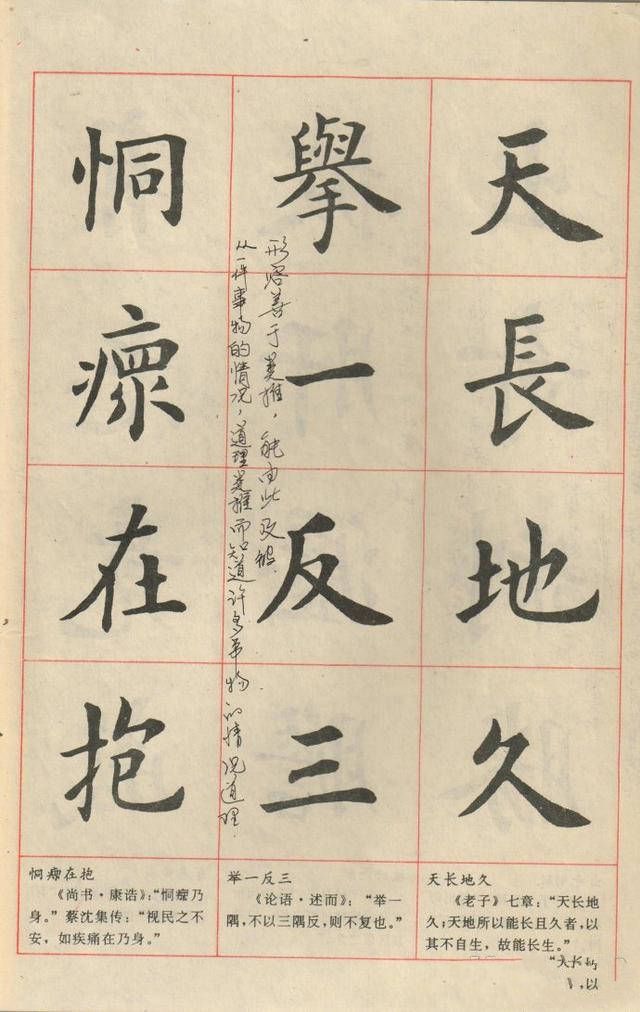 天長地久
舉一反三
形容善于类推，能由此及彼．
从一件事物的情况，道理类推而知道许多事物的情况道理．
恫瘝在抱
天长地久
《老子》七章：“天长地
久；天地所以能长且久者，以
其不自生，故能长生。”
“天长的
》，以
举一反三
《论语·述而》：“举一
隅，不以三隅反，则不复也。”
恫瘝在抱
《尚书·康诰》：“恫瘝乃
身。”蔡沈集传：“视民之不
安，如疾痛在乃身。”